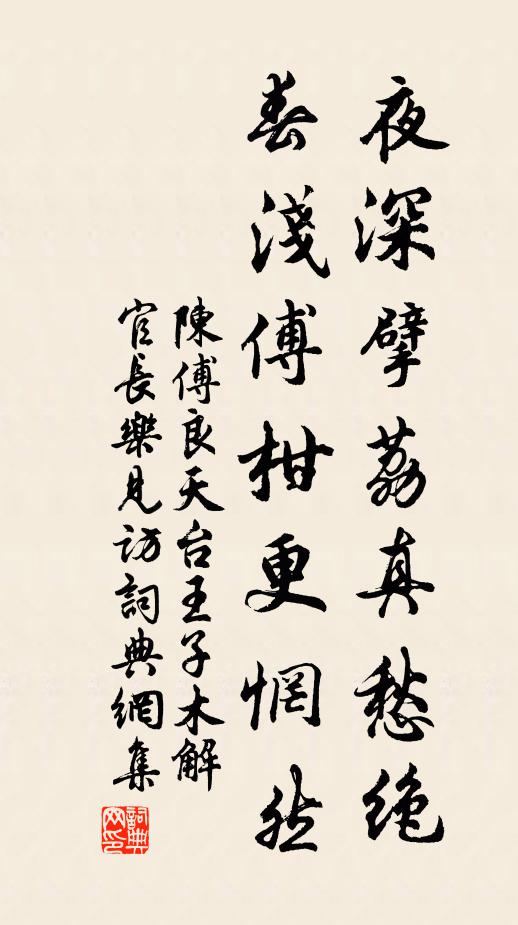 夜深擘荔真愁绝
春淺傅柑更惘然
陳傅良天台王子木解
官長樂見访詞典網集
詞典网印